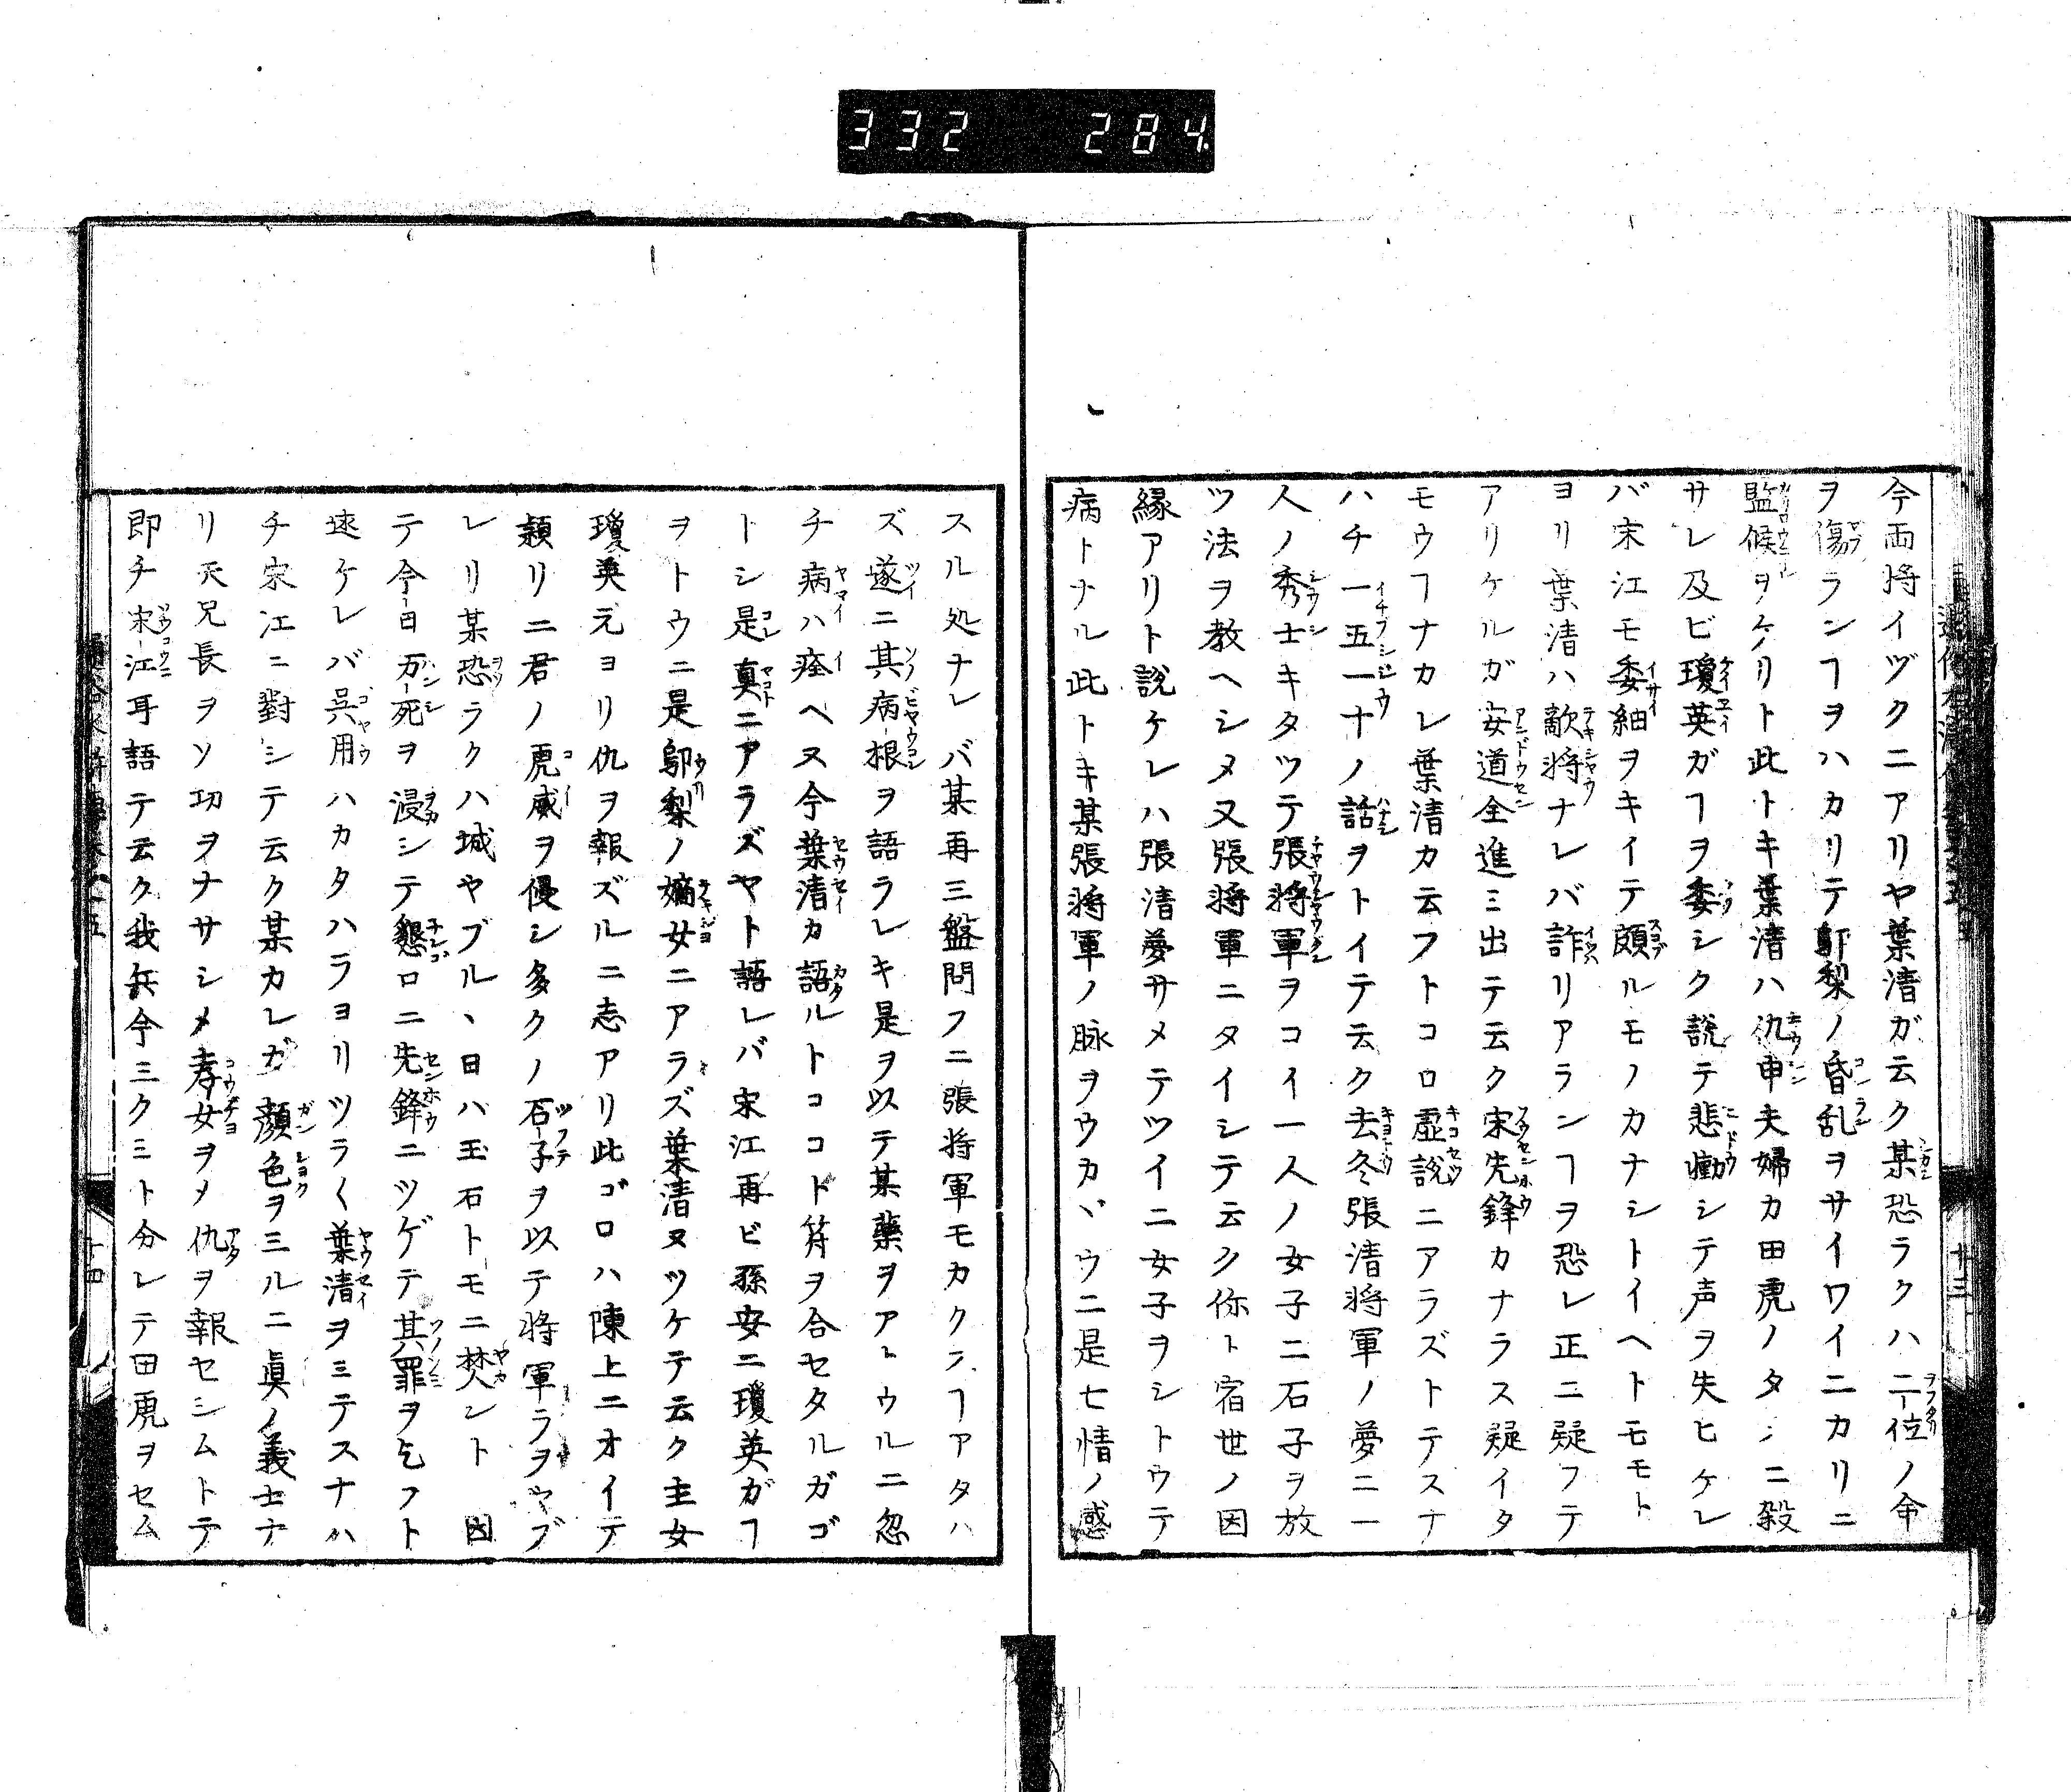 332 284
今両将イヅクニアリヤ葉清ガ云ク某恐ラクハ二位ノ命
ヲ傷ランヿヲハカリテ鄔梨ノ昏乱ヲサイワイニカリニ
監候ヲケリト此トキ葉清ハ仇申夫婦カ田虎ノタメニ殺
サレ及ビ瓊英ガヿヲ委シク説テ悲慟シテ声ヲ失ヒケレ
バ宋江モ委細ヲキイテ頗ルモノカナシトイヘトモモト
ヨリ葉清ハ敵将ナレバ詐リアランヿヲ恐レ正ニ疑フテ
アリケルガ安道全進ミ出テ云ク宋先鋒カナラス疑イタ
モウヿナカレ葉清カ云フトコロ虚説ニアラズトテスナ
ハチ一五一十ノ話ヲトイテ云ク去冬張清将軍ノ夢ニ一
人ノ秀士キタツテ張将軍ヲコイ一人ノ女子ニ石子ヲ放
ツ法ヲ教ヘシメ又張将軍ニタイシテ云ク你ト宿世ノ因
縁アリト説ケレハ張清夢サメテツイニ女子ヲシトウテ
病トナル此トキ某張将軍ノ脉ヲウカヾウニ是七情ノ感
スル処ナレバ某再三盤問フニ張将軍モカクスヿアタハ
ズ遂ニ其病根ヲ語ラレキ是ヲ以テ某藥ヲアトウルニ忽
チ病ハ痊ヘ又今葉清カ語ルトコロト符ヲ合セタルガゴ
トシ是真ニアラズヤト語レバ宋江再ビ孫安ニ瓊英ガヿ
ヲトウニ是鄔梨ノ嫡女ニアラズ葉清又ツケテ云ク主女
瓊英元ヨリ仇ヲ報ズルニ志アリ此ゴロハ陳上ニオイテ
頬リニ君ノ虎威ヲ侵シ多クノ石子ヲ以テ将軍ラヲヤブ
レリ某恐ラクハ城ヤブルヽ日ハ玉石トモニ焚ント 因
テ今日万死ヲ浸シテ懇ロニ先鋒ニツゲテ其罪ヲ乞フト
速ケレバ呉用ハカタハラヨリツラ〱葉清ヲミテスナハ
チ宋江ニ對シテ云ク某カレガ顔色ヲミルニ眞ノ義士ナ
リ天兄長ヲソ功ヲナサシメ孝女ヲメ仇ヲ報セシムトテ
即チ宋江耳語テ云ク我兵今三クミト分レテ田虎ヲセム